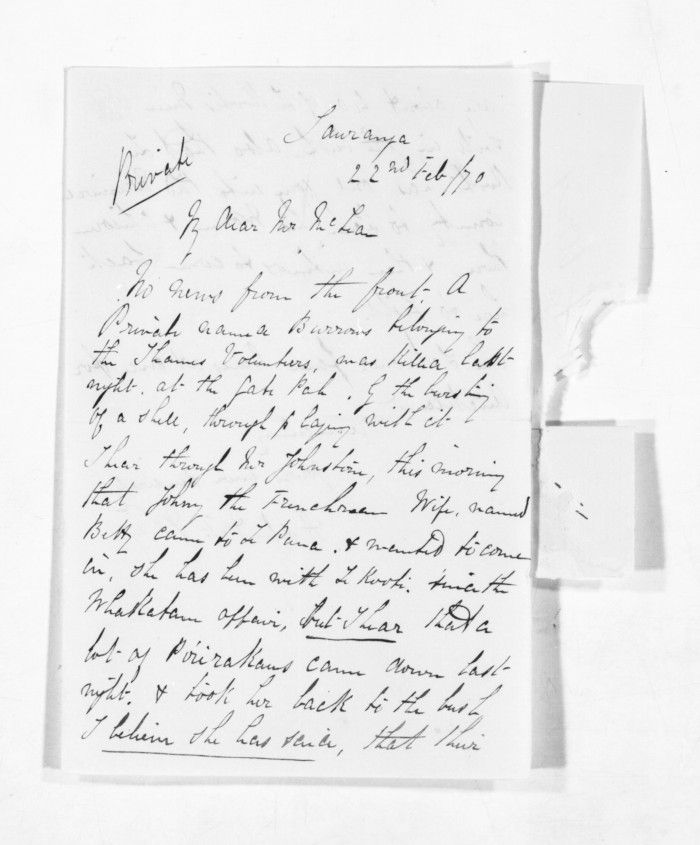 Tauranga
22nd Feb/70
Private
My dear Mr McLean
No news from the front. A
Private named Burrows belonging to
the Thames Volunteers, was killed last
night. at the Gate Pah. by the bursting
of a shell, through playing with it
I hear through Mr Johnston, this morning
that Johny the Frenchman Wife, named
Betty came to Te Puna. & wanted to come
in, she has been with Te Kooti. since the
Whakatane affair, but I hear that a
lot of Pirirakaus came down last
night. & took her back to the bush
I believe she has said, that their